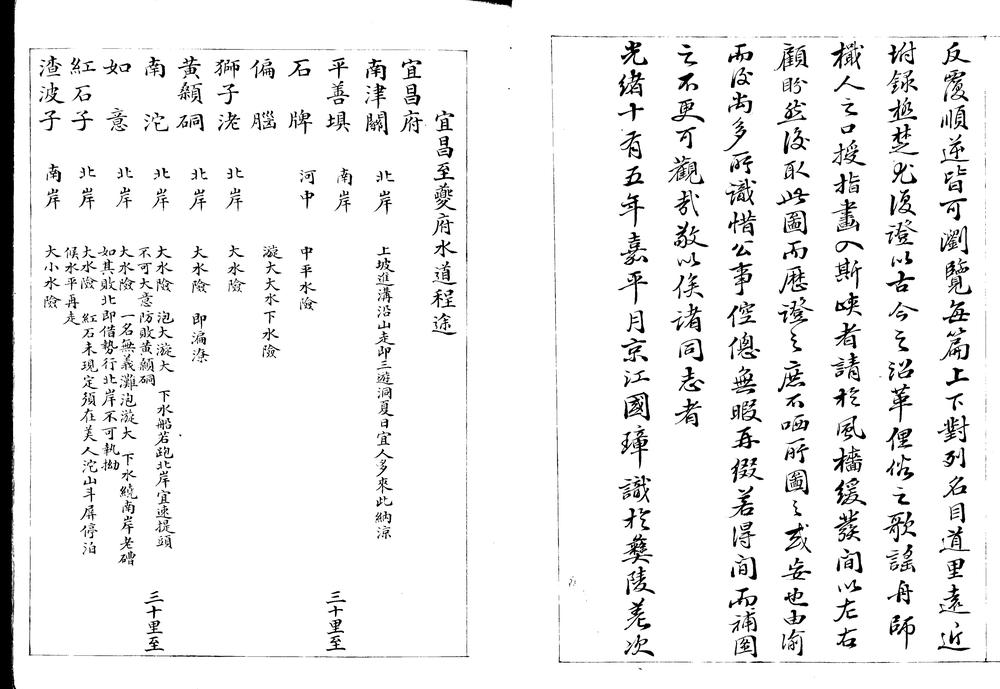 反覆順逆皆可瀏覽每篇上下對列名目道里遠近
坿錄極楚尤復證以古今之沿革俚俗之歌謠舟師
檥人之口授指畫入斯峽者請於風檣緩發間以左右
顧盼然後取此圖而歷證之庶不哂所圖之或妄也由渝
而後尚多所識惜公事倥傯無暇再綴若得間而補圖
之不更可觀哉敬以俟諸同志者
光緒十有五年嘉平月京江國璋識於彝陵差次
宜昌至夔府水道程途
宜昌府
南津關 北岸 上坡進溝沿山走即三遊洞夏日宜人多來此納涼
平善埧 南岸 三十里至
石牌 河中 中平水險
偏腦 漩大大水下水險
獅子𣲘 北岸 大水險
黃顙硐 北岸 大水險 即漏漈
南沱 北岸 大水險 泡大漩大 下水船若跑北岸宜速提頭
不可大意防敗黃顙硐 三十里至
如意 北岸 大水險 一名無義灘泡漩大 下水繞南岸老磳
如其敗北即借勢行北岸不可執拗
紅石子 北岸 大水險 紅石未現定須在美人沱山斗屏停泊
候水平再走
渣波子 南岸 大小水險